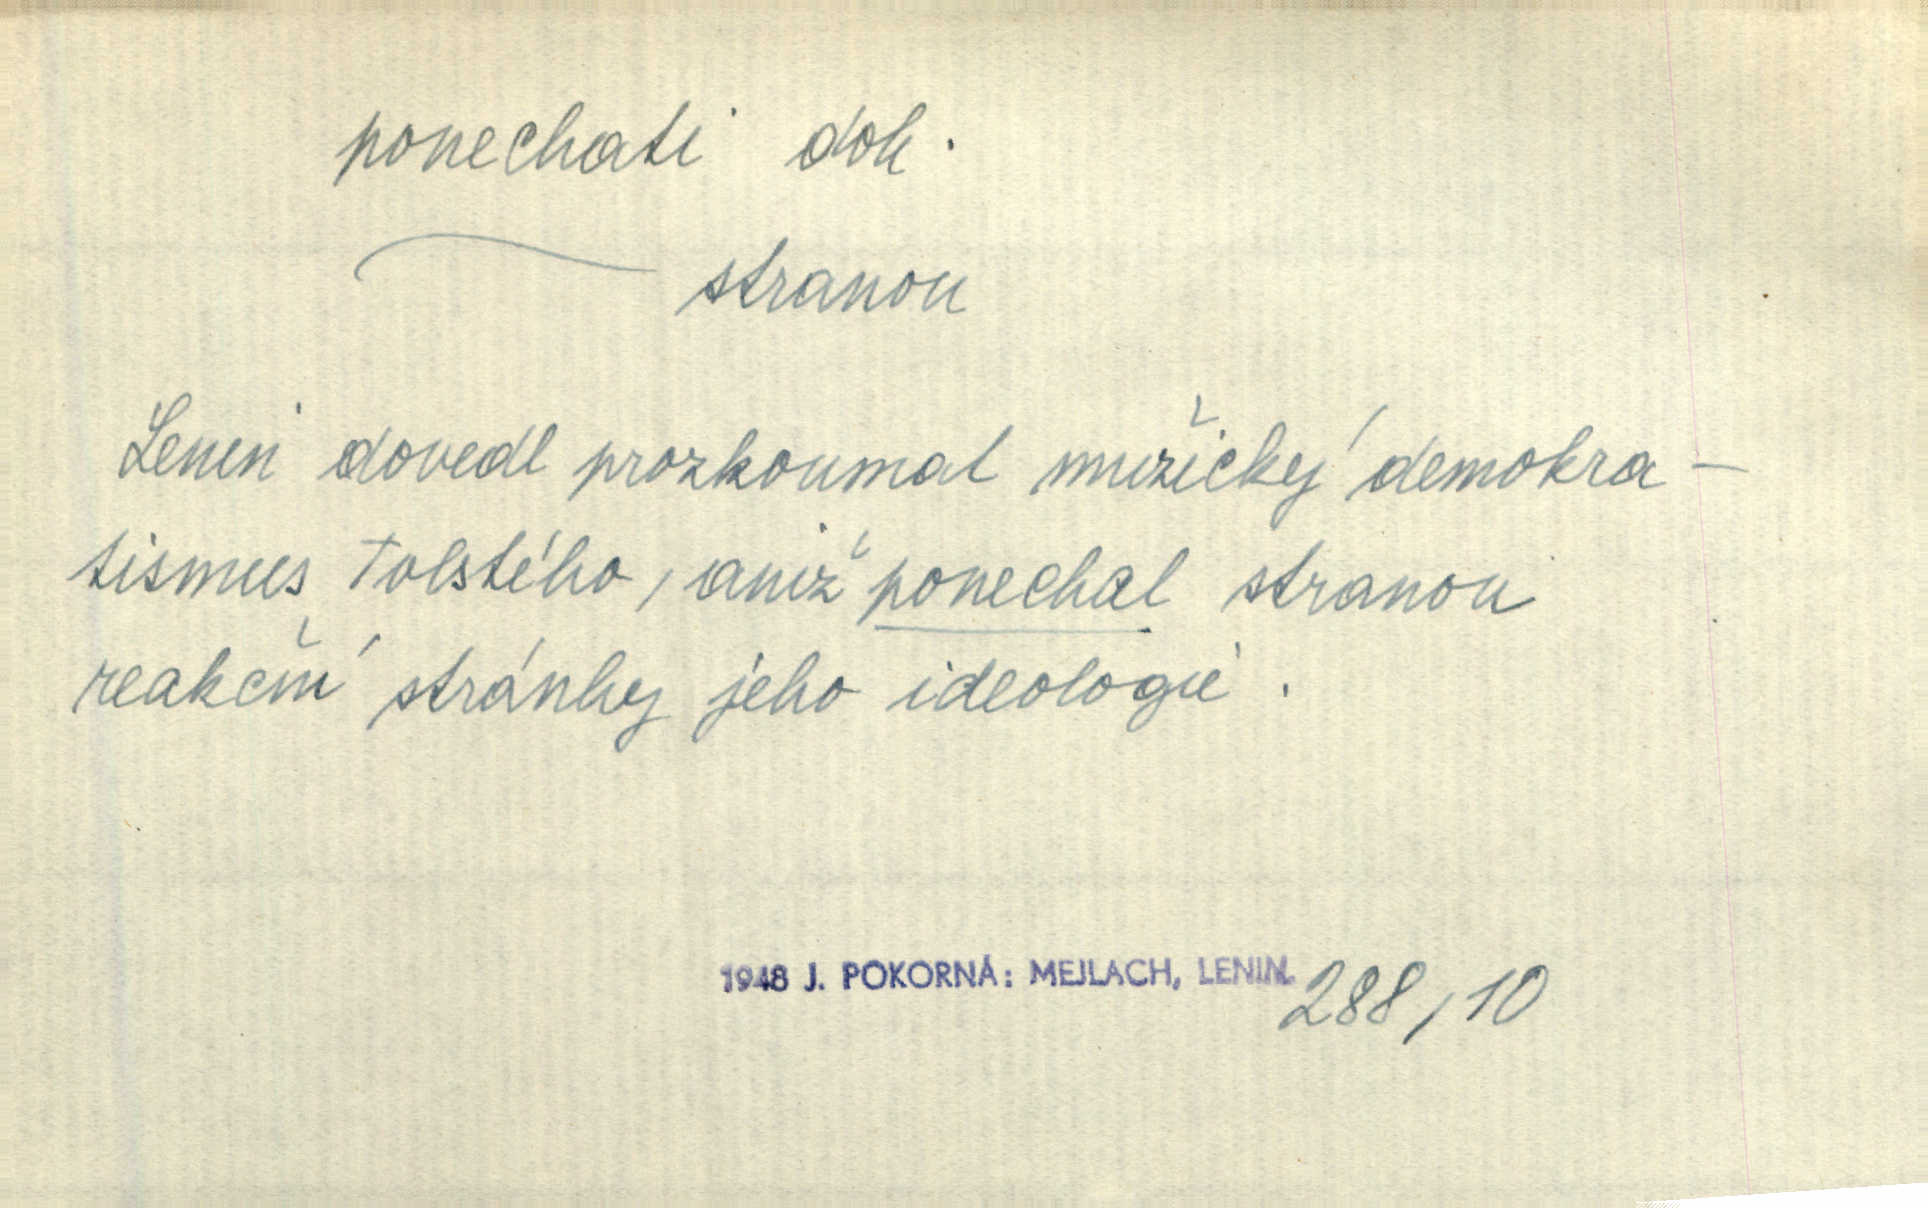 ponechati dok.
stranou
Lenin dovedl prozkoumat mužický demokra-
tismus Tolstého, aniž ponechal stranou
reakční stránky jeho ideologie.
1948 J. POKORNÁ: MEJLACH, LENIN. 288/10